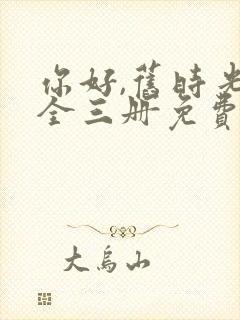 你好,舊時光
全三册免費
大鳥山